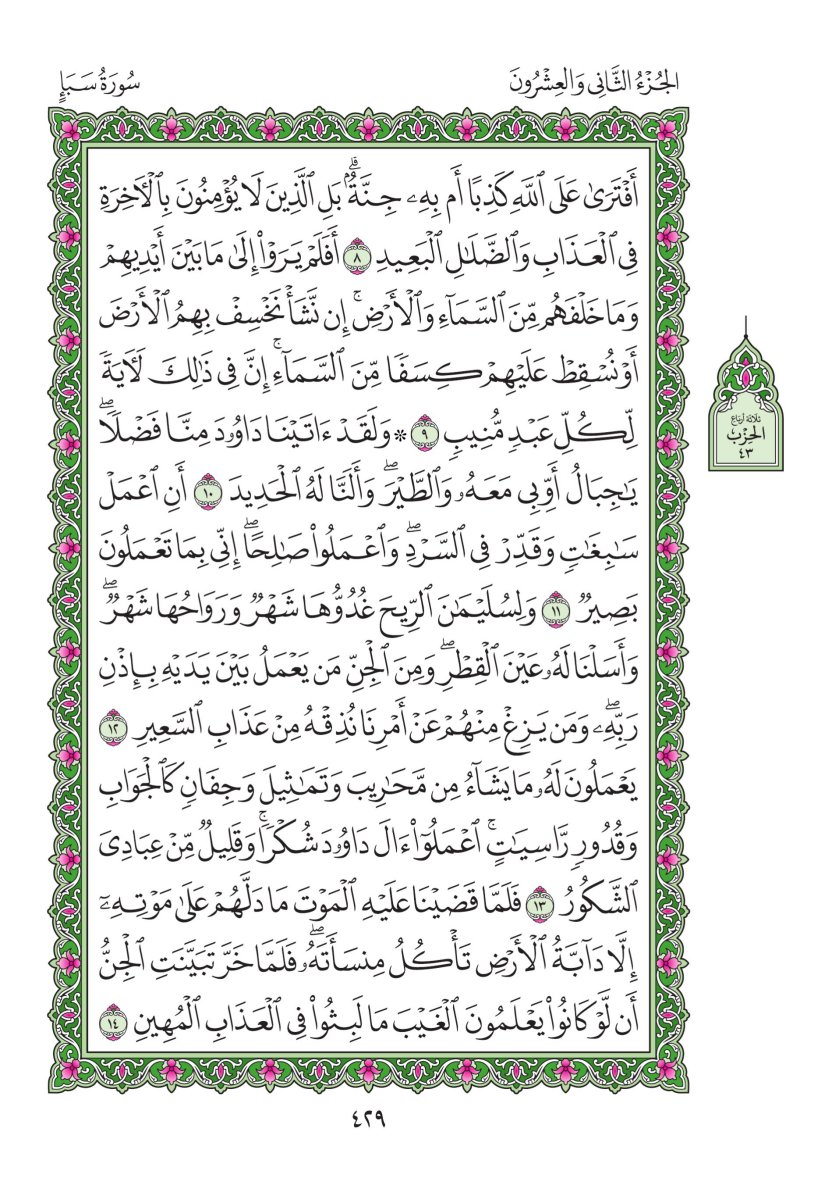 الجُزْءُ الثَّانِي وَالعِشْرُونَ
سُورَةُ سَبَإٍ
أَفْتَرَىٰ عَلَى ٱللَّهِ كَذِبًا أَم بِهِۦ جِنَّةُۢۗ بَلِ ٱلَّذِينَ لَا يُؤْمِنُونَ بِٱلْأٓخِرَةِ
فِي ٱلْعَذَابِ وَٱلضَّلَٰلِ ٱلْبَعِيدِ ٨ أَفَلَمْ يَرَوْا۟ إِلَىٰ مَا بَيْنَ أَيْدِيهِمْ
وَمَا خَلْفَهُم مِّنَ ٱلسَّمَآءِ وَٱلْأَرْضِۚ إِن نَّشَأْ نَخْسِفْ بِهِمُ ٱلْأَرْضَ
أَوْ نُسْقِطْ عَلَيْهِمْ كِسَفًا مِّنَ ٱلسَّمَآءِۚ إِنَّ فِي ذَٰلِكَ لَأٓيَةً
لِّكُلِّ عَبْدٍ مُّنِيبٍ ٩ ۞ وَلَقَدْ ءَاتَيْنَا دَاوُۥدَ مِنَّا فَضْلًاۖ
يَٰجِبَالُ أَوِّبِي مَعَهُۥ وَٱلطَّيْرَۖ وَأَلَنَّا لَهُ ٱلْحَدِيدَ ١٠ أَنِ ٱعْمَلْ
سَٰبِغَٰتٍ وَقَدِّرْ فِي ٱلسَّرْدِۖ وَٱعْمَلُوا۟ صَٰلِحًاۖ إِنِّي بِمَا تَعْمَلُونَ
بَصِيرٌ ١١ وَلِسُلَيْمَٰنَ ٱلرِّيحَ غُدُوُّهَا شَهْرٌ وَرَوَاحُهَا شَهْرٌۖ
وَأَسَلْنَا لَهُۥ عَيْنَ ٱلْقِطْرِۖ وَمِنَ ٱلْجِنِّ مَن يَعْمَلُ بَيْنَ يَدَيْهِ بِإِذْنِ
رَبِّهِۦۖ وَمَن يَزِغْ مِنْهُمْ عَنْ أَمْرِنَا نُذِقْهُ مِنْ عَذَابِ ٱلسَّعِيرِ ١٢
يَعْمَلُونَ لَهُۥ مَا يَشَآءُ مِن مَّحَٰرِيبَ وَتَمَٰثِيلَ وَجِفَانٍ كَٱلْجَوَابِ
وَقُدُورٍ رَّاسِيَٰتٍۚ ٱعْمَلُوٓا۟ ءَالَ دَاوُۥدَ شُكْرًاۚ وَقَلِيلٌ مِّنْ عِبَادِيَ
ٱلشَّكُورُ ١٣ فَلَمَّا قَضَيْنَا عَلَيْهِ ٱلْمَوْتَ مَا دَلَّهُمْ عَلَىٰ مَوْتِهِۦٓ
إِلَّا دَآبَّةُ ٱلْأَرْضِ تَأْكُلُ مِنسَأَتَهُۥۖ فَلَمَّا خَرَّ تَبَيَّنَتِ ٱلْجِنُّ
أَن لَّوْ كَانُوا۟ يَعْلَمُونَ ٱلْغَيْبَ مَا لَبِثُوا۟ فِي ٱلْعَذَابِ ٱلْمُهِينِ ١٤
ثلاثة أرباع
الحِزْب
٤٣
٤٢٩